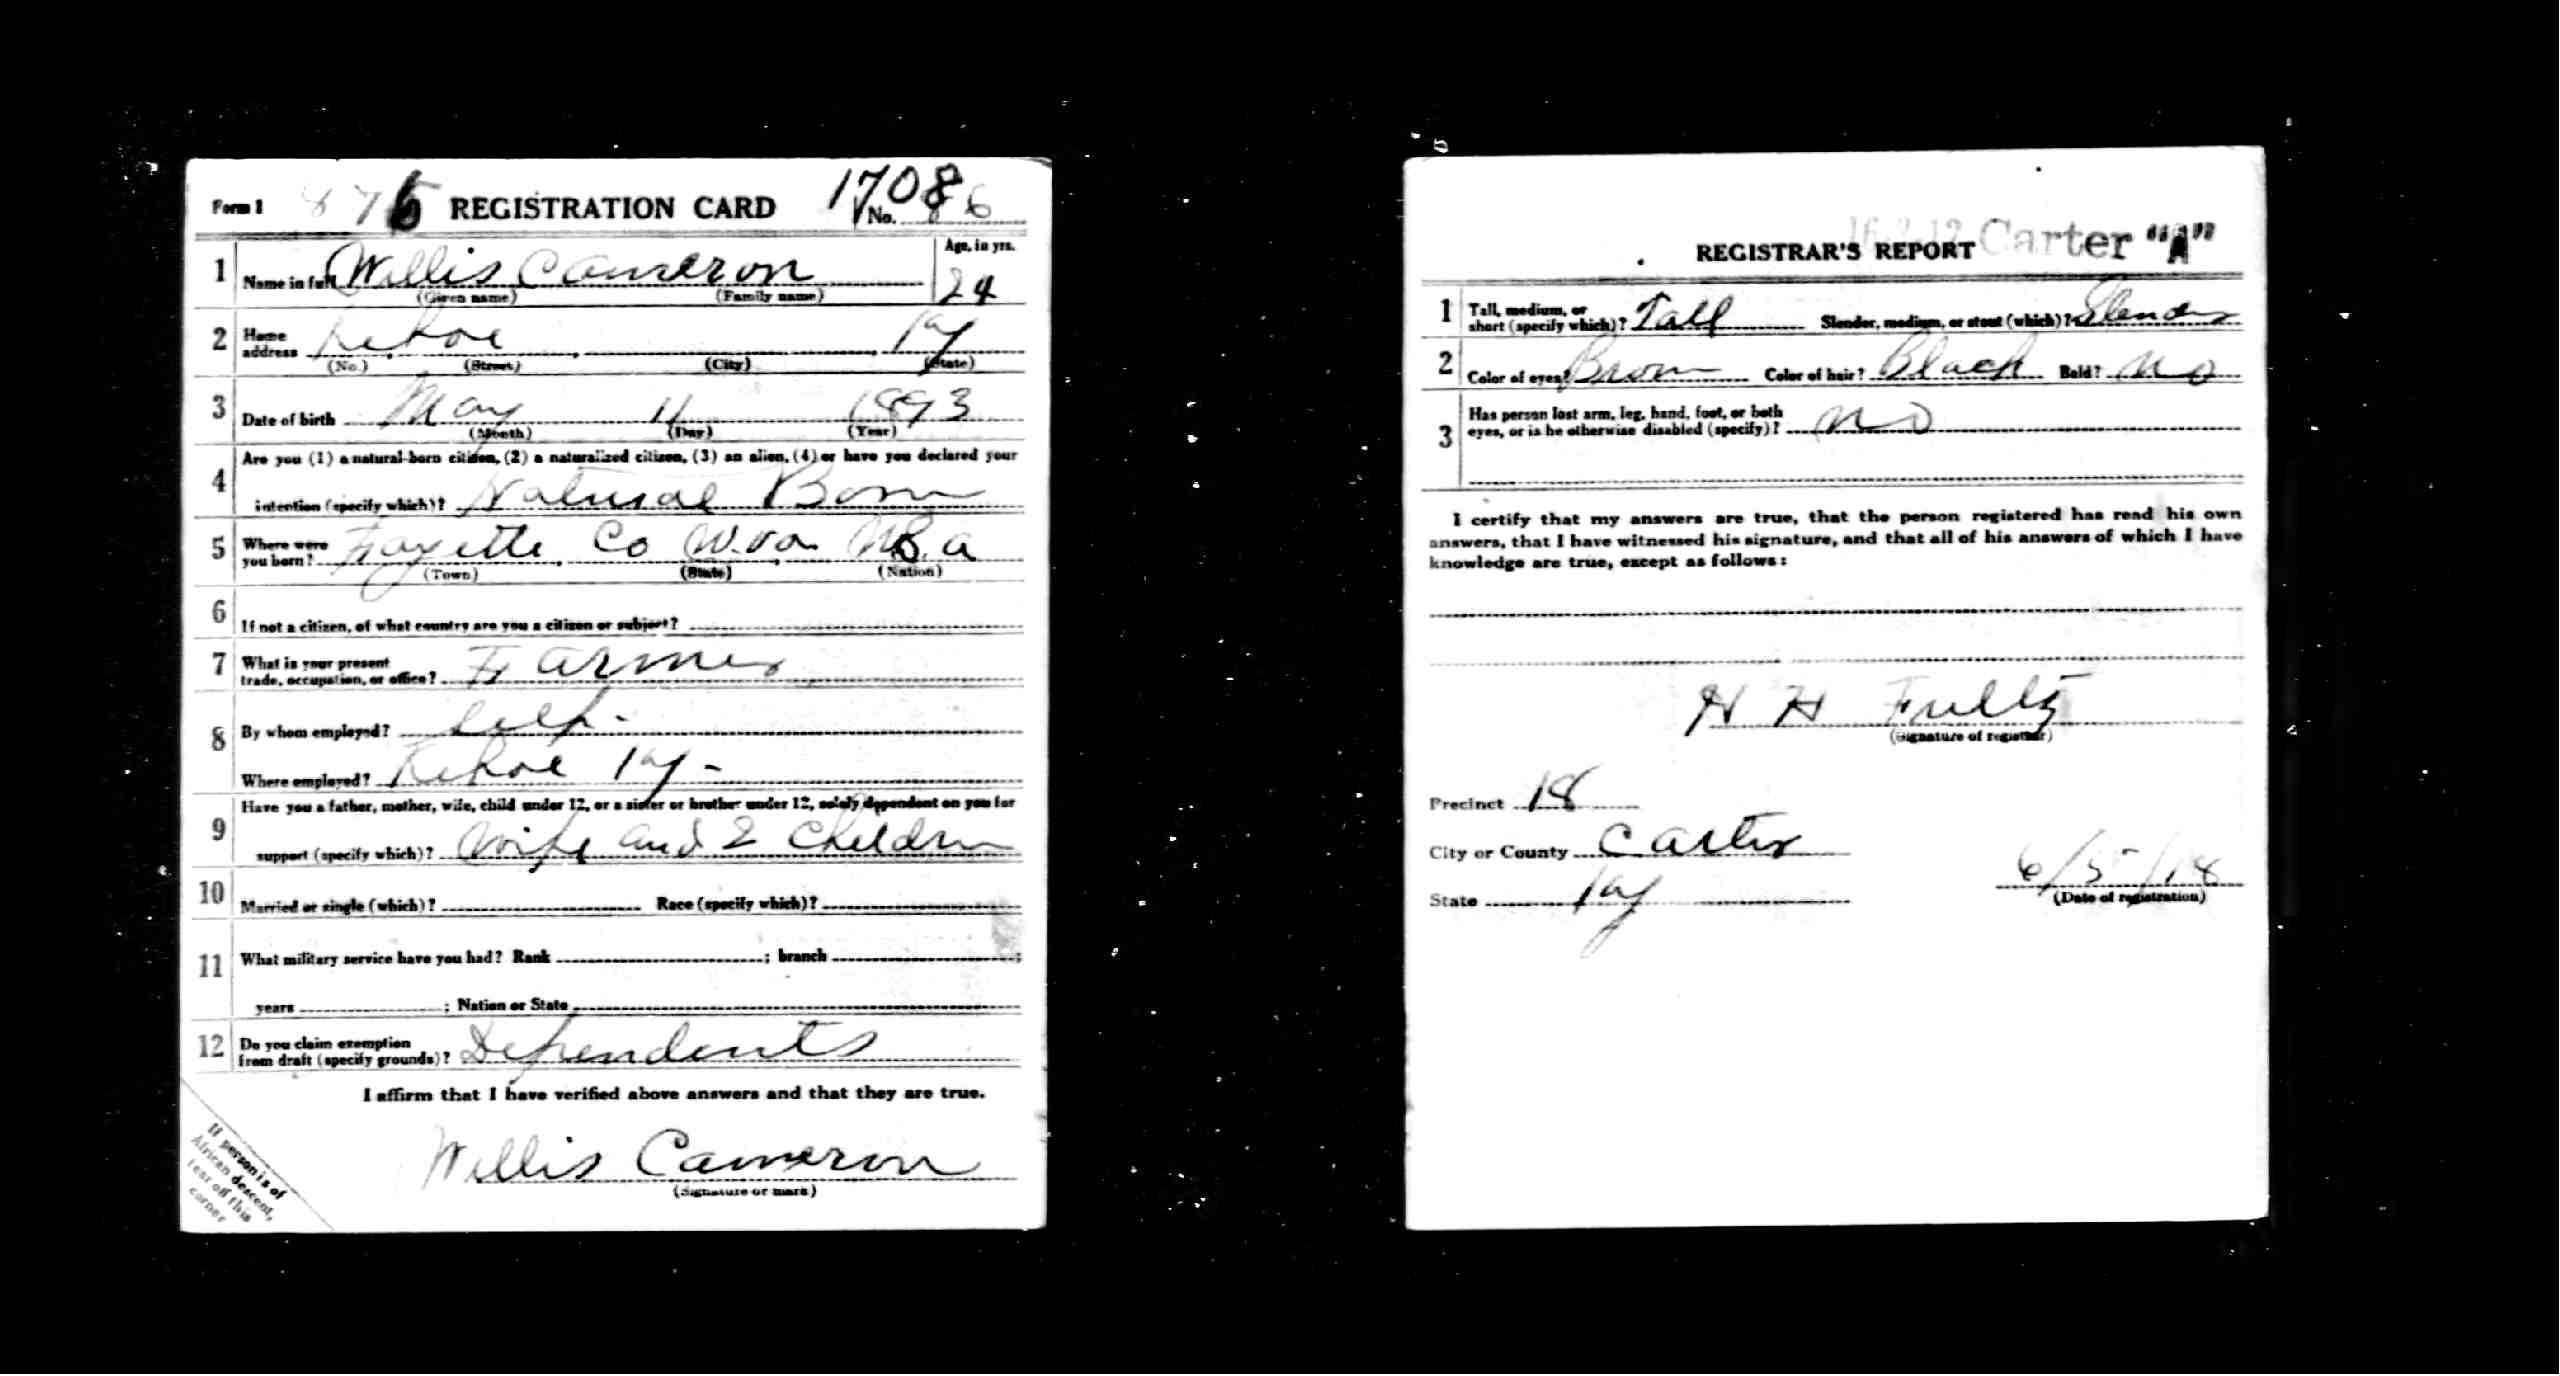 Form 1 REGISTRATION CARD 1708 No. 86
1 Name in full Willis Cameron Age, in yrs. 24
(Given name) (Family name)
2 Home address Kehoe Ky
(No.) (Street) (City) (State)
3 Date of birth May 11 1893
(Month) (Day) (Year)
4 Are you (1) a natural-born citizen, (2) a naturalized citizen, (3) an alien, (4) or have you declared your
intention (specify which)? Natural Born
5 Where were you born? Fayette Co W.va
(Town) (State) (Nation)
6 If not a citizen, of what country are you a citizen or subject?
7 What is your present trade, occupation, or office? Farmer
8 By whom employed? Self -
Where employed? Kehoe Ky -
9 Have you a father, mother, wife, child under 12, or a sister or brother under 12, solely dependent on you for
support (specify which)? Wife and 2 Children
10 Married or single (which)? Race (specify which)?
11 What military service have you had? Rank ; branch ;
years ; Nation or State
12 Do you claim exemption from draft (specify grounds)? Dependents
I affirm that I have verified above answers and that they are true.
Willis Cameron
(Signature or mark)
If person is of
African descent,
tear off this
corner
REGISTRAR'S REPORT Carter "A"
1 Tall, medium, or short (specify which)? Tall Slender, medium, or stout (which)? Slender
2 Color of eyes? Brown Color of hair? Black Bald? No
3 Has person lost arm, leg, hand, foot, or both
eyes, or is he otherwise disabled (specify)? No
I certify that my answers are true, that the person registered has read his own
answers, that I have witnessed his signature, and that all of his answers of which I have
knowledge are true, except as follows:
H H Fultz
(Signature of registrar)
Precinct 18
City or County Carter
State Ky
6/5/18
(Date of registration)